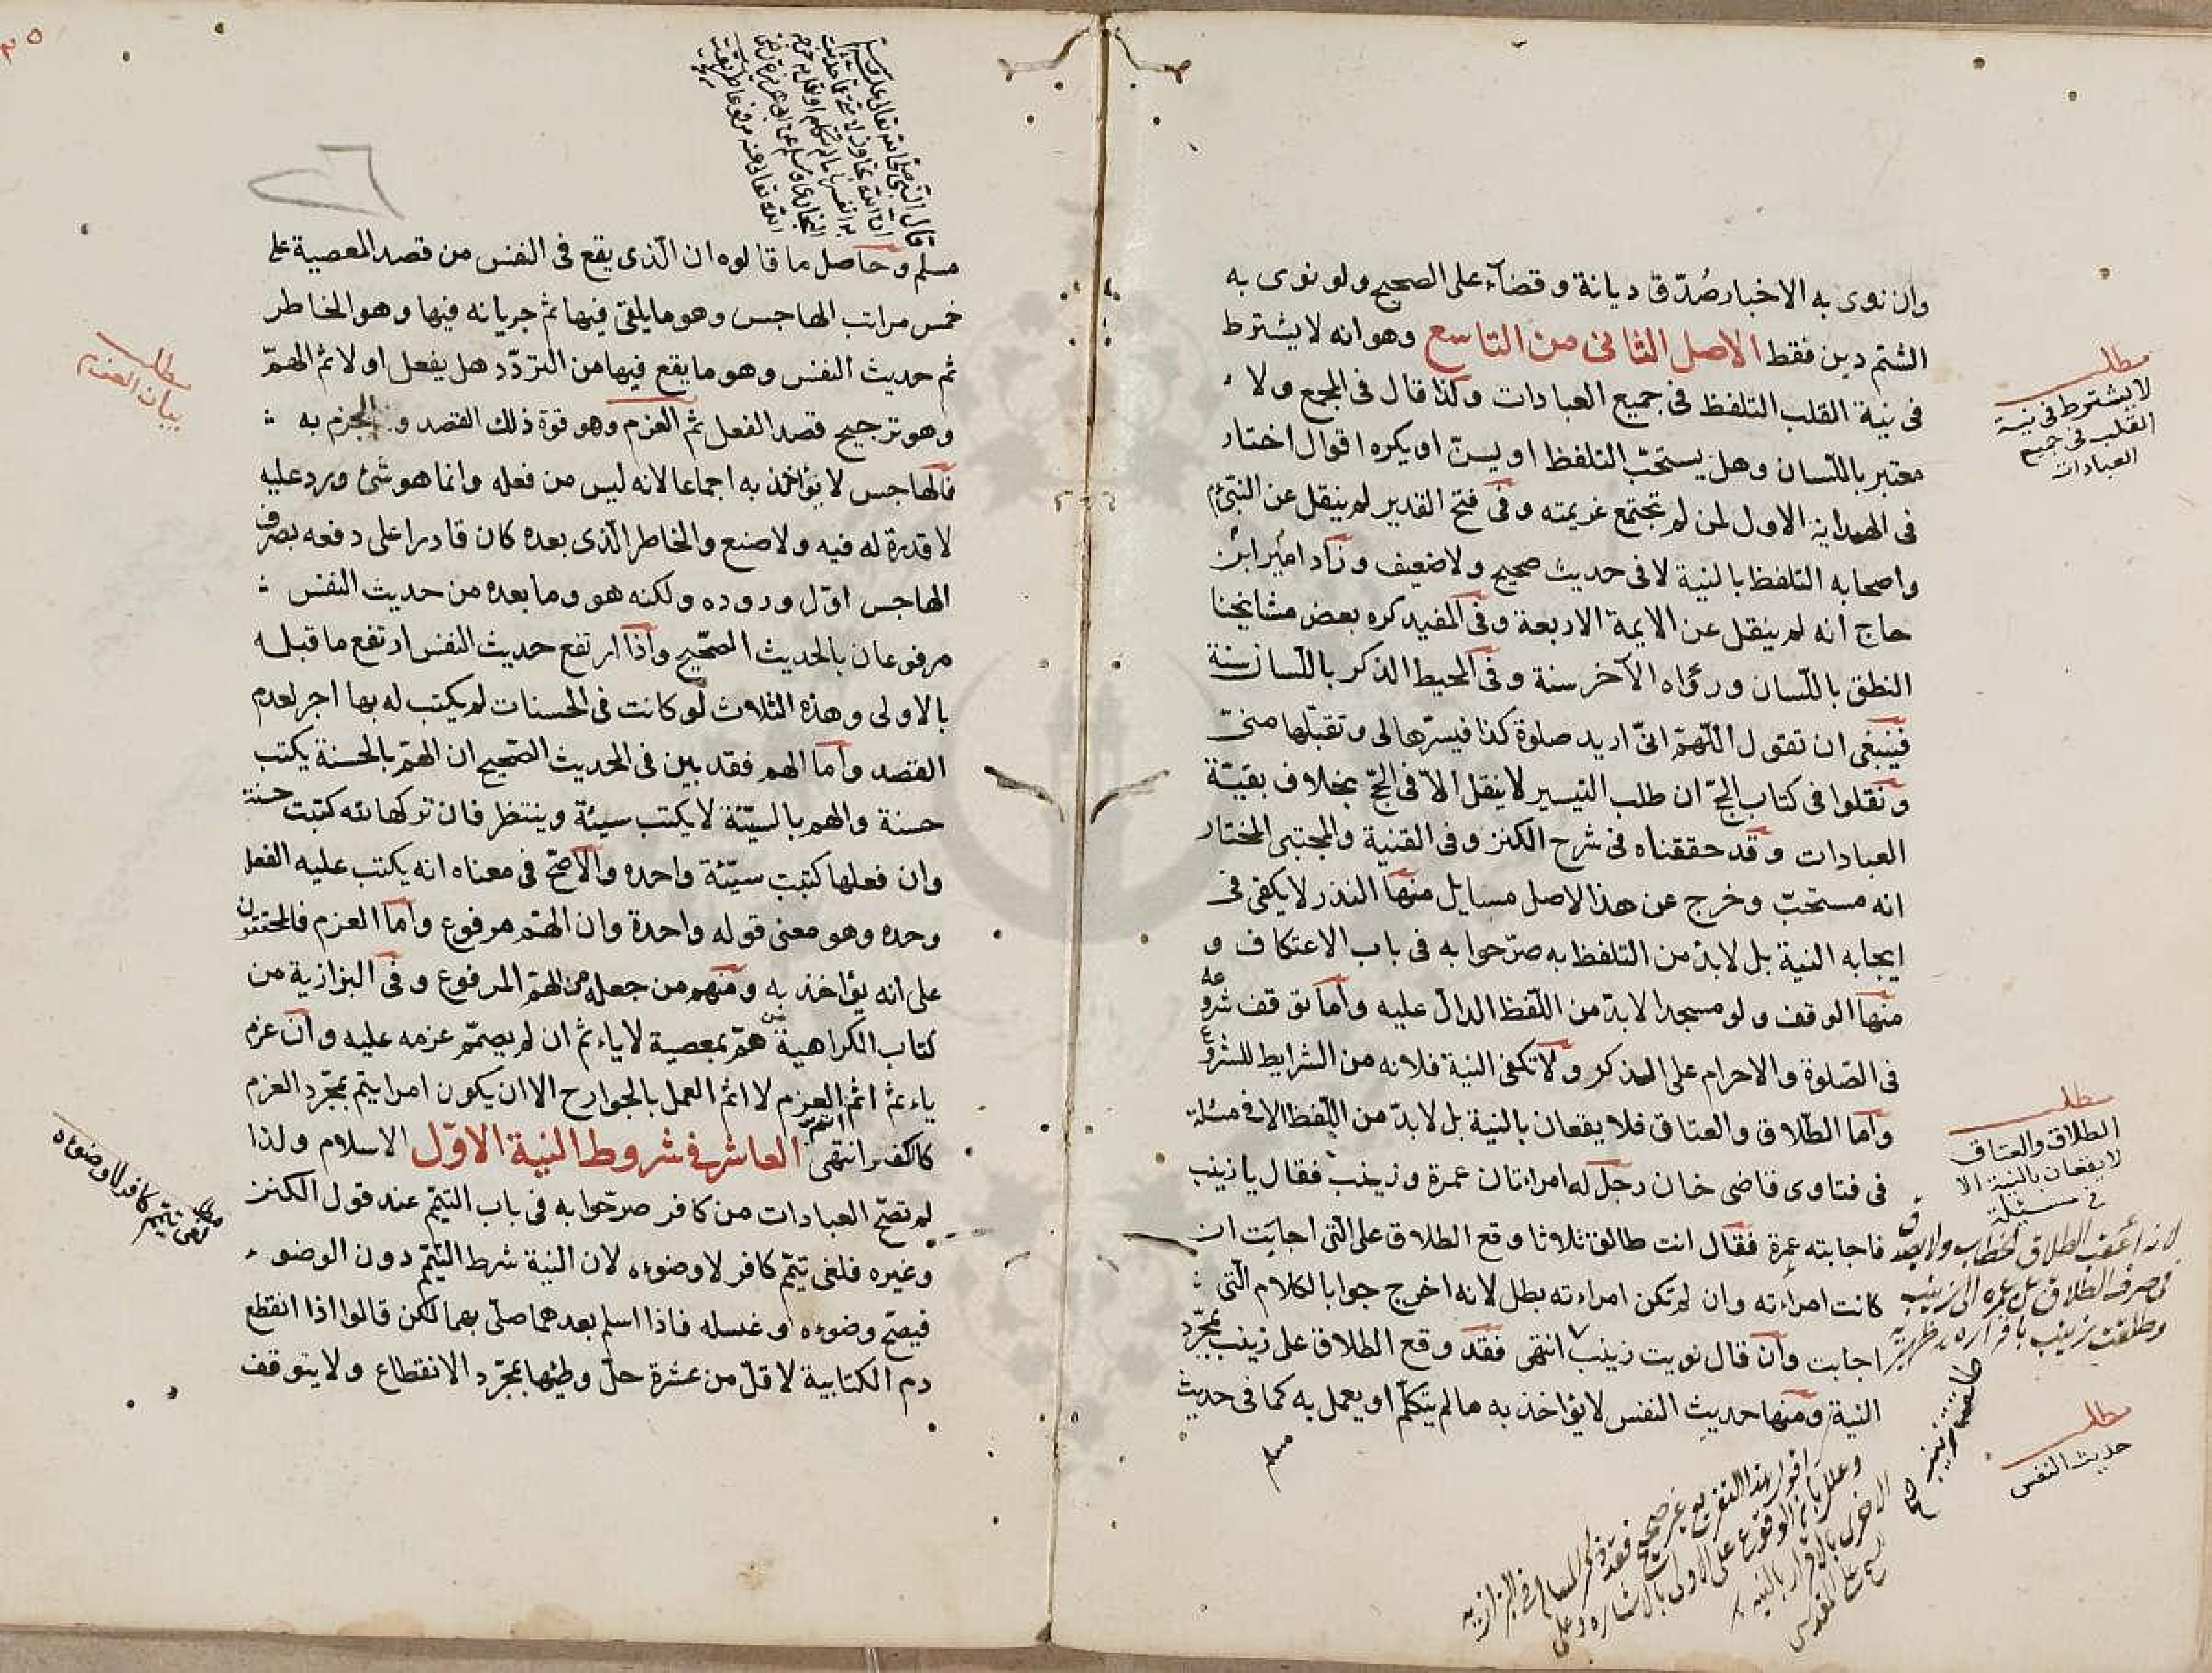 وان نوى به الاخبار صُدّق ديانة وقضآء على الصحيح ولو نوى به
الشتم دين فقط الاصل الثانى من التاسع وهو انه لا يشترط
فى نية القلب التلفظ فى جميع العبادات وكذا قال فى المجمع ولا
معتبر باللسان وهل يستحبّ التلفظ او يسنّ او يكره اقوال اختار
فى الهداية الاول لمن لم تجتمع عزيمته وفى فتح القدير لم ينقل عن النبىّ عم
واصحابه التلفظ بالنية لا فى حديث صحيح ولا ضعيف وزاد امير ابن
حاج انه لم ينقل عن الايمة الاربعة وفى المفيد كره بعض مشايخنا
النطق باللسان ورءاه الآخر سنة وفى المحيط الذكر باللسان سنة
فينبغى ان تقول اللهمّ انىّ اريد صلوة كذا فيسّرها لى وتقبّلها منىّ
ونقلوا فى كتاب الحجّ ان طلب التيسير لا ينقل الاّ فى الحجّ بخلاف بقيّة
العبادات وقد حققناه فى شرح الكنز وفى القنية والمجتبى المختار
انه مستحبّ وخرج عن هذا الاصل مسايل منها النذر لا يكفى فى
ايجابه النية بل لابدّ من التلفظ به صرّحوا به فى باب الاعتكاف و
منها الوقف ولو مسجدا لابدّ من اللفظ الدالّ عليه واما توقف شروعه
فى الصّلوة والاحرام على الذكر ولا تكفى النية فلانه من الشرايط للشروع
وامّا الطّلاق والعتاق فلا يقعان بالنية بل لابدّ من اللّفظ الا فى مسئلة
فى فتاوى قاضى خان رجل له امراتان عمرة وزينب فقال يا زينب
فاجابته عمرة فقال انت طالق ثلاثا وقع الطلاق على التى اجابت ان
كانت امراءته وان لم تكن امراءته بطل لانه اخرج جوابا لكلام الّتى
اجابت وان قال نويت زينب انتهى فقد وقع الطلاق على زينب بمجرّد
النية ومنها حديث النفس لا يؤاخذ به ما لم يتكلّم او يعمل به كما فى حديث
مسلم
مطلب
لا يشترط فى نية
القلب فى جميع
العبادات
مطلب
الطلاق والعتاق
لا يقعان بالنية الا
فى مسئلة
لانه اعقب الطلاق الخطاب ولا يصدق
فى صرف الطلاق عن عمرة الى زينب
وطلقت زينب باقراره ظهيرية
مطلب
حديث النفس
اقول هذا التفريع غير صحيح فقد ذكر المسالة فى البزازيه
وعلل بان الوقوع على الاولى بالاشارة وعلى
الاخرى بالاقرار بالنية
على المقدسى
قال النبى صلى الله تعالى عليه وسلم
ان الله تجاوز لامتى عما حدثت
به انفسها ما لم تتكلم او تعمل به
البخارى ومسلم عن ابى هريرة رضى
الله تعالى عنه مرفوعا
مسلم وحاصل ما قالوه ان الّذى يقع فى النفس من قصد المعصية على
خمس مراتب الهاجس وهو ما يلقى فيها ثم جريانه فيها وهو الخاطر
ثم حديث النفس وهو ما يقع فيها من التردّد هل يفعل او لا ثم الهمّ
وهو ترجيح قصد الفعل ثم العزم وهو قوة ذلك القصد و الجزم به
فالهاجس لا يؤاخذ به اجماعا لانه ليس من فعله وانما هو شئ ورد عليه
لا قدرة له فيه ولا صنع والخاطر الّذى بعده كان قادرا على دفعه بصرف
الهاجس اوّل وروده ولكنه هو وما بعده من حديث النفس
مرفوعان بالحديث الصّحيح واذا ارتفع حديث النفس ارتفع ما قبله
بالاولى وهذه الثلاث لو كانت فى الحسنات لم يكتب له بها اجر لعدم
القصد وامّا الهم فقد بين فى الحديث الصّحيح ان الهمّ بالحسنة يكتب
حسنة والهم بالسيّئة لا يكتب سيئة وينتظر فان تركها لله كتبت حسنة
وان فعلها كتبت سيّئة واحده والاصحّ فى معناه انه يكتب عليه الفعل
وحده وهو معنى قوله واحدة وان الهمّ مرفوع وامّا العزم فالمحققون
على انه يؤاخذ به ومنهم من جعله من الهمّ المرفوع وفى البزازية من
كتاب الكراهية من همّ بمعصية لا ياءثم ان لم يصمّم عزمه عليه وان عزم
ياءثم اثم العزم لا اثم العمل بالجوارح الا ان يكون امرا يتم بمجرّد العزم
كالكفر انتهى العاشر فى شروط النية الاوّل الاسلام ولذا
لم تصحّ العبادات من كافر صرّحوا به فى باب التيمّم عند قول الكنز
وغيره فلغى تيمّم كافر لا وضوءه لان النية شرط التيمّم دون الوضوء
فيصحّ وضوءه وغسله فاذا اسلم بعدهما صلّى بهما لكن قالوا اذا انقطع
دم الكتابية لاقلّ من عشرة حلّ وطئها بمجرّد الانقطاع ولا يتوقف
مطلب
بيان العزم
تيمّم كافر لا وضوءه